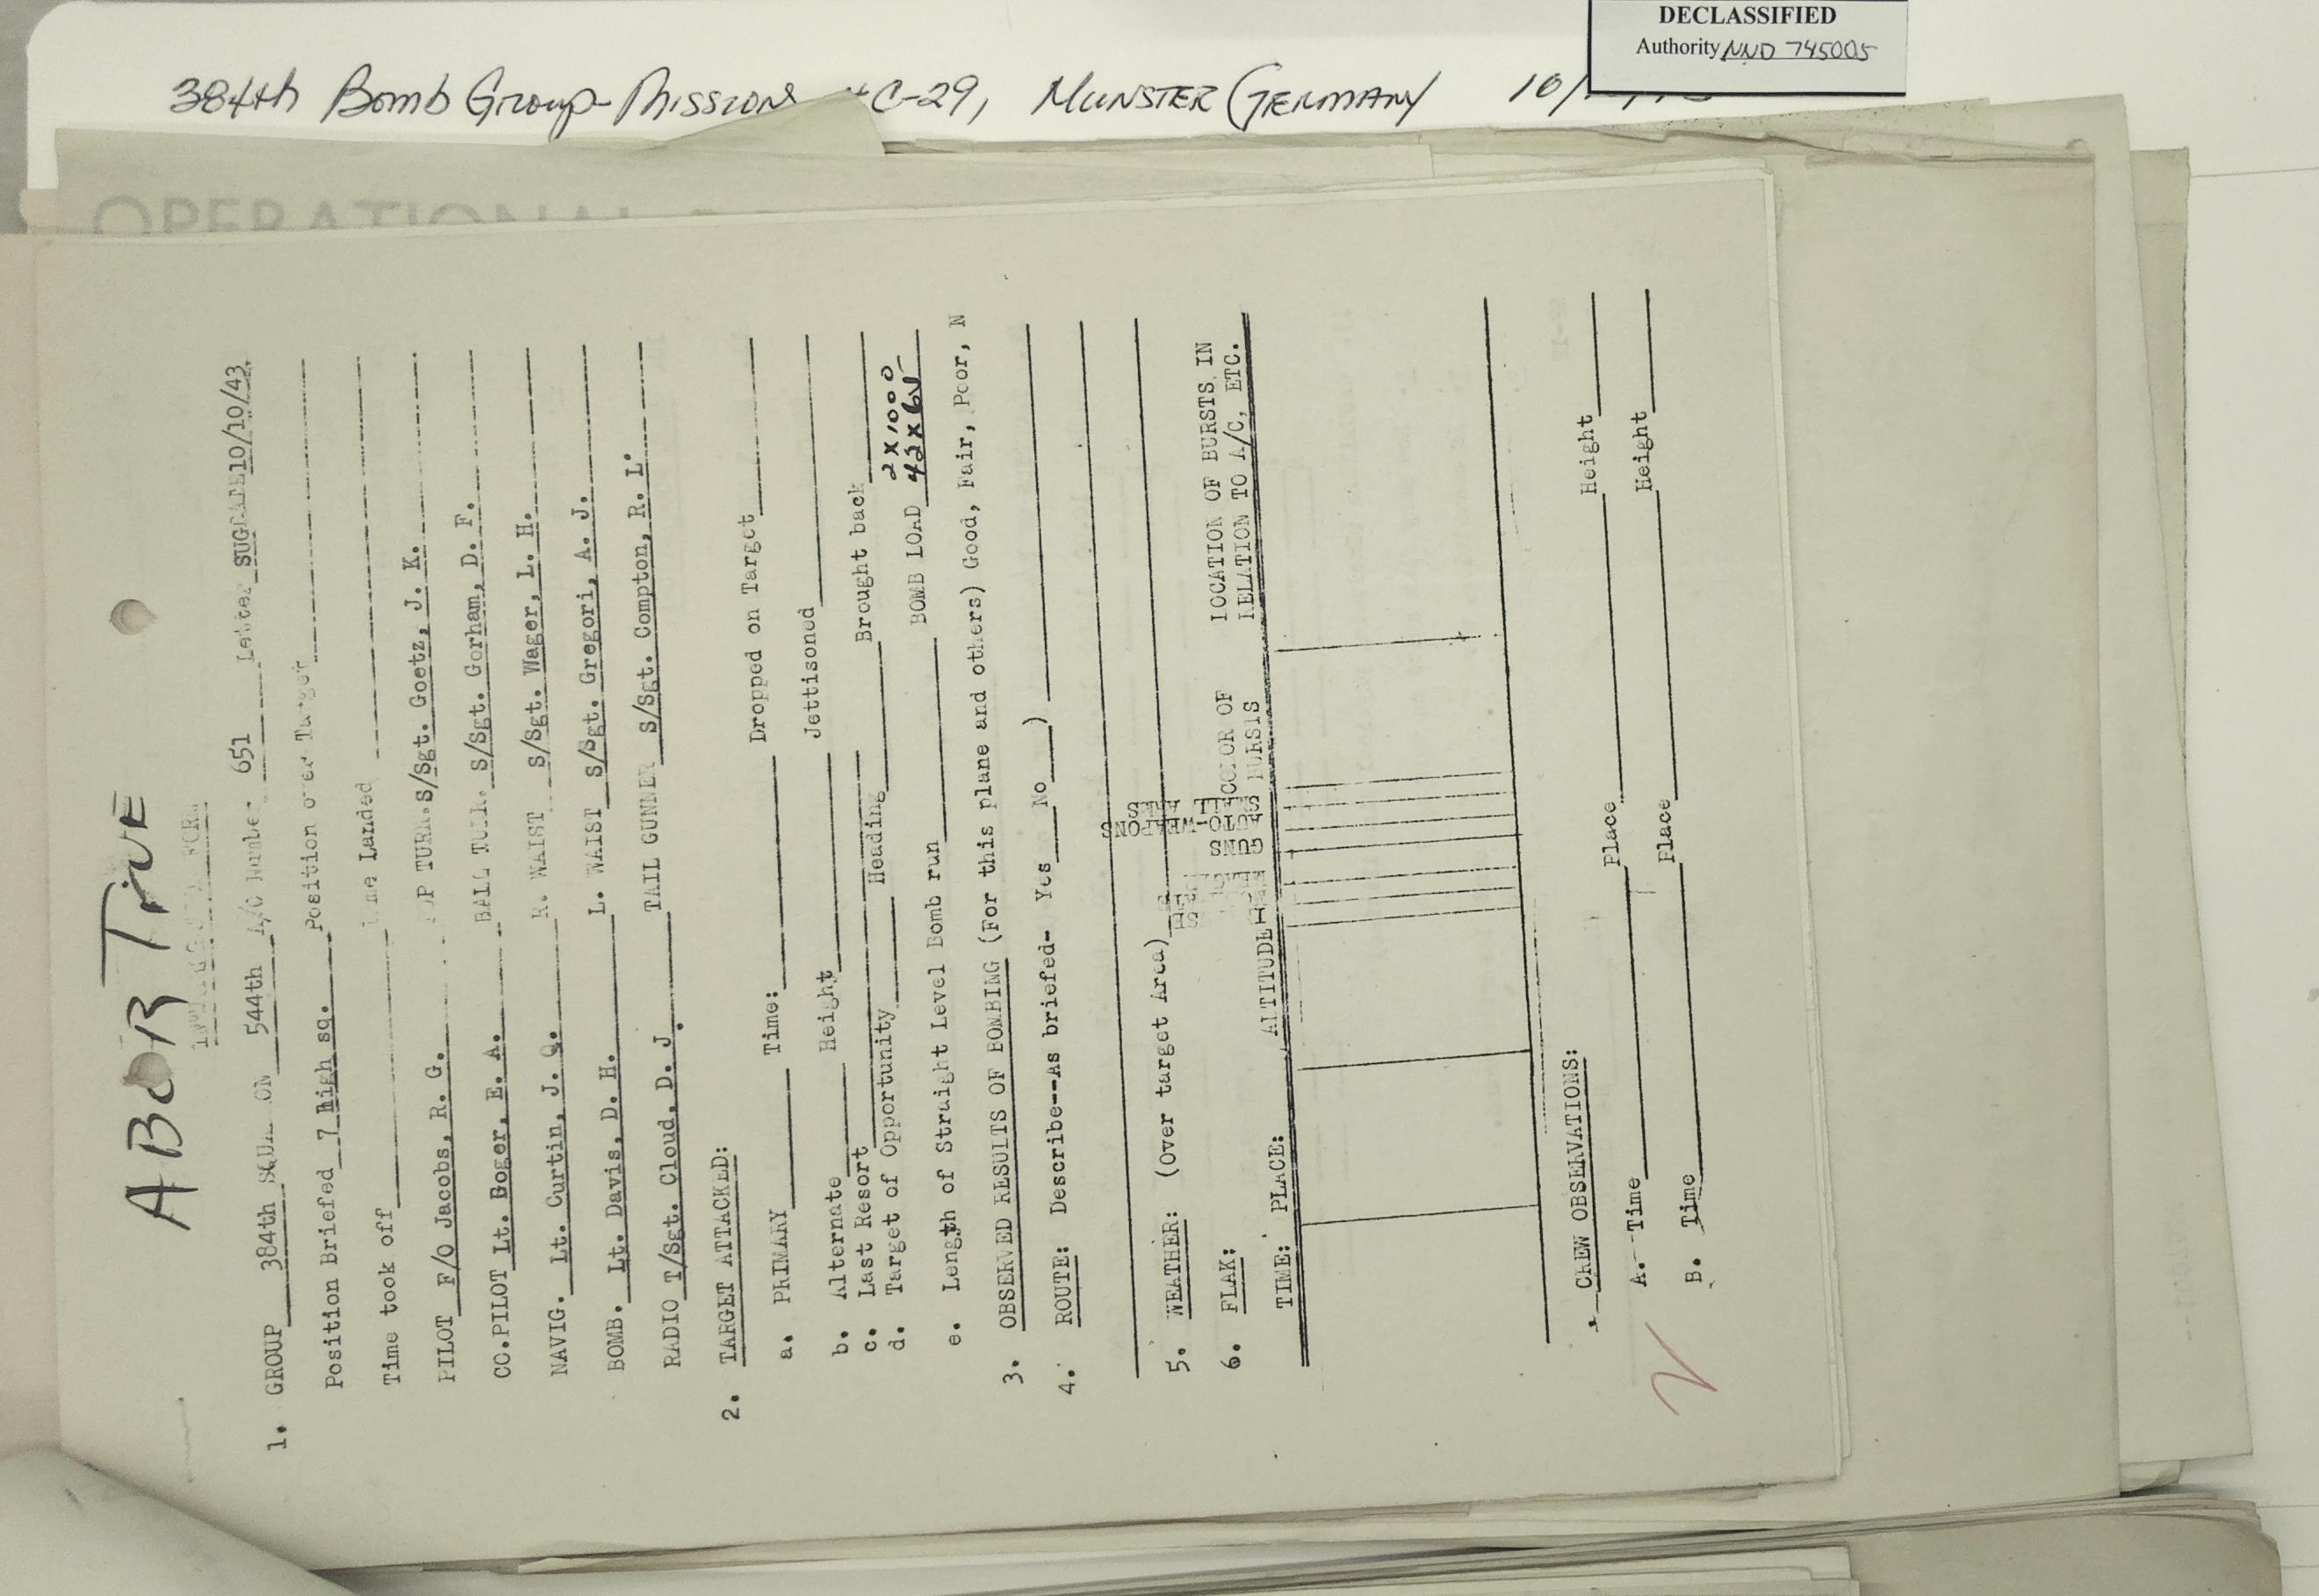 DECLASSIFIED
Authority NND 745005
384th Bomb Group-Mission #C-29, MUNSTER GERMANY 10/
OPERATIONAL
ABORTIVE
1. GROUP 384th SQUADRON 544th A/C Number 651 Letter SUGAR 10/10/43
Position Briefed 7 high sq. Position over Target
Time took off Time Landed
PILOT F/O Jacobs, R. G. TOP TURR. S/Sgt. Goetz, J. K.
CO.PILOT Lt. Boger, E. A. BALL TURR. S/Sgt. Gorham, D. F.
NAVIG. Lt. Curtin, J. Q. R. WAIST S/Sgt. Wager, L. H.
BOMB. Lt. Davis, D. H. L. WAIST S/Sgt. Gregori, A. J.
RADIO T/Sgt. Cloud, D. J. TAIL GUNNER S/Sgt. Compton, R. L.
2. TARGET ATTACKED:
a. PRIMARY Time: Dropped on Target
b. Alternate Height Jettisoned
c. Last Resort
d. Target of Opportunity Heading Brought back
2 X 1000
e. Length of Straight Level Bomb run BOMB LOAD 42 X 65
3. OBSERVED RESULTS OF BOMBING (For this plane and others) Good, Fair, Poor, N
4. ROUTE: Describe--As briefed- Yes No )
5. WEATHER: (Over target Area)
6. FLAK:
GUNS AUTO-WEAPONS
COLOR OF BURSTS
LOCATION OF BURSTS IN
RELATION TO A/C, ETC.
TIME: PLACE: ALTITUDE
CREW OBSERVATIONS:
A. Time Place Height
B. Time Place Height